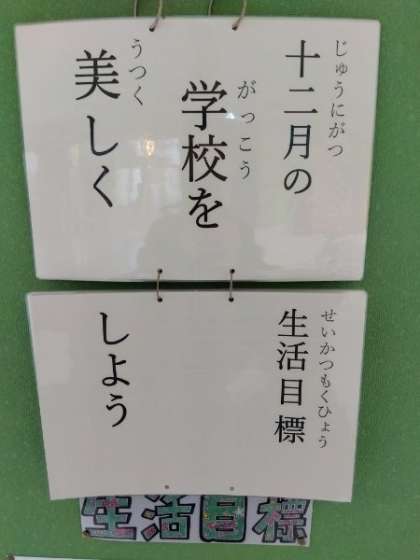 じゅうにがつ
十二月の
せいかつもくひょう
生活目標
がっこう
学校を
うつく
美しく
しよう
生活目標